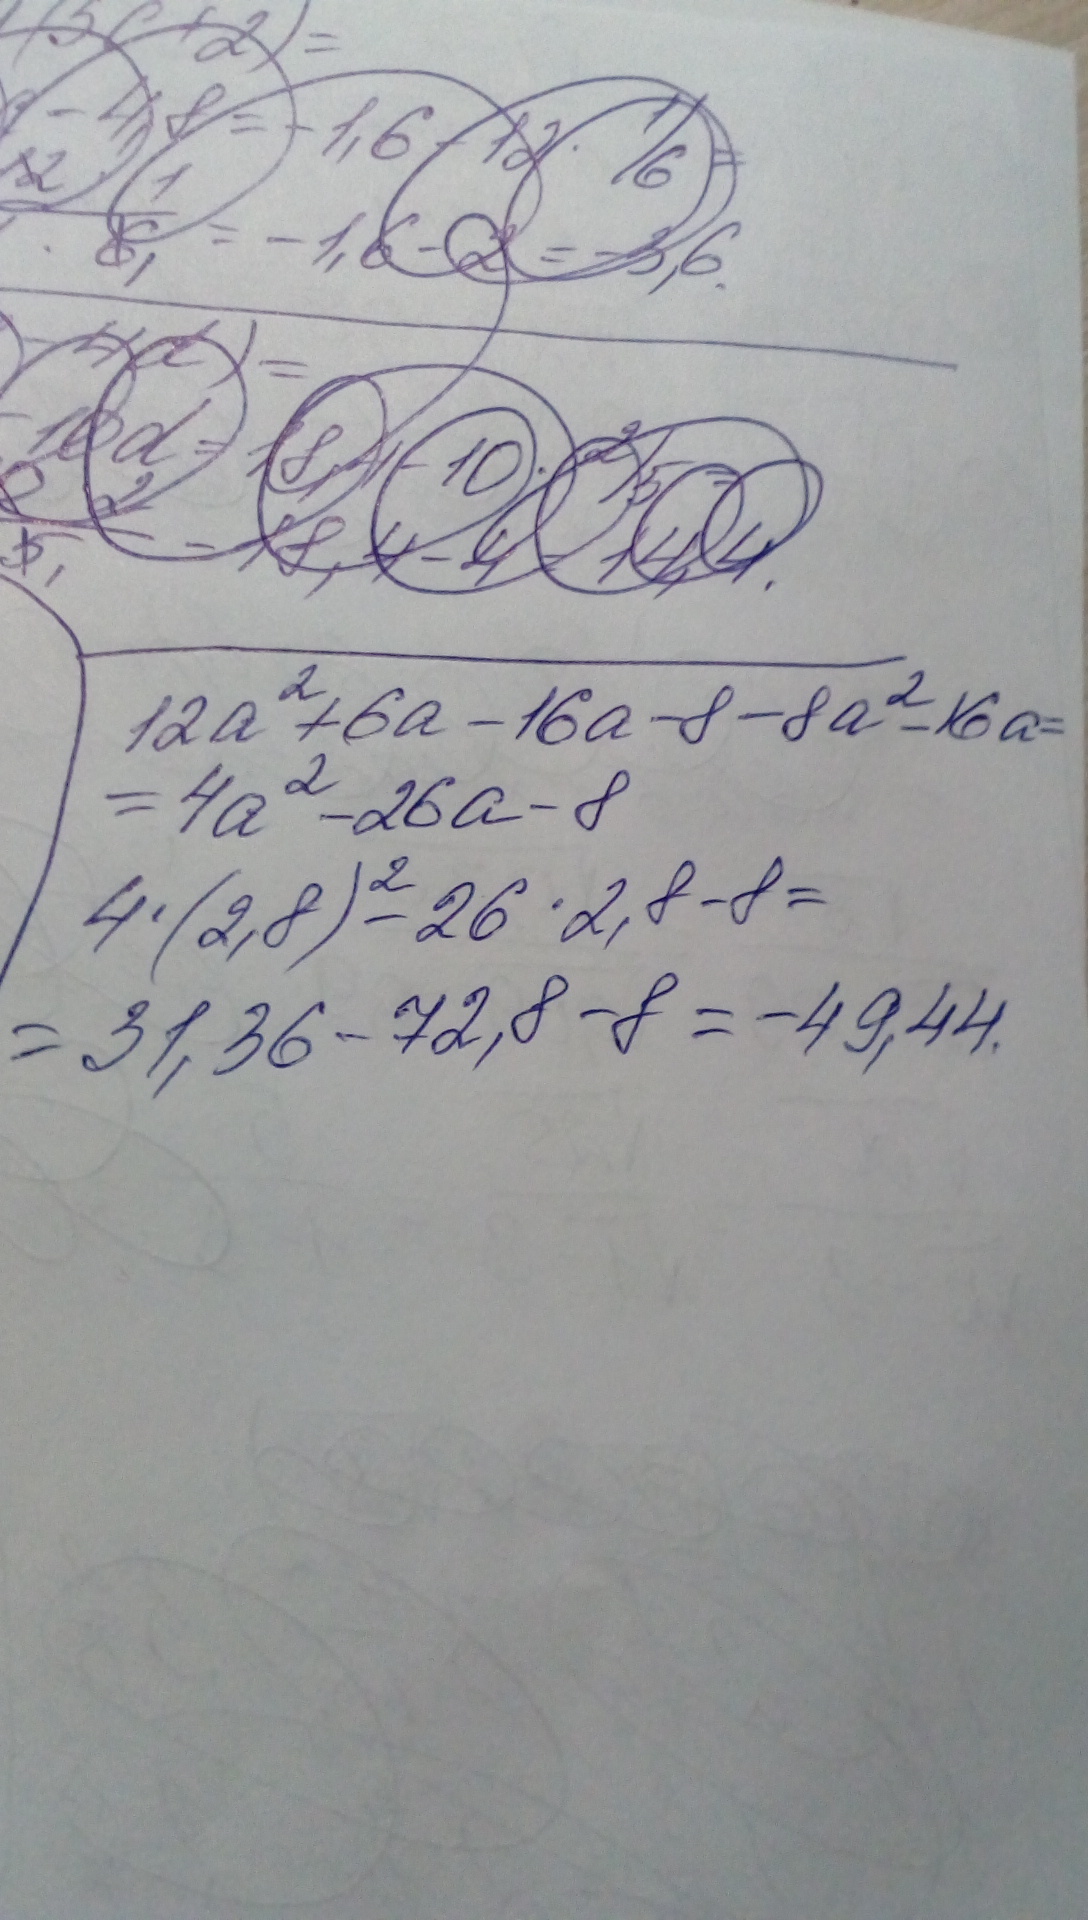 +2) =
- 4,8 = -1,6 - 12 · 1/6 =
12 · 1
· 6, = -1,6 - 2 = -3,6.
- 4d) =
- 10d = 18,4 - 10 · 2/5 =
2
5, = 18,4 - 4 = 14,4.
12a² + 6a - 16a - 8 - 8a² - 16a =
= 4a² - 26a - 8
4 · (2,8)² - 26 · 2,8 - 8 =
= 31,36 - 72,8 - 8 = -49,44.